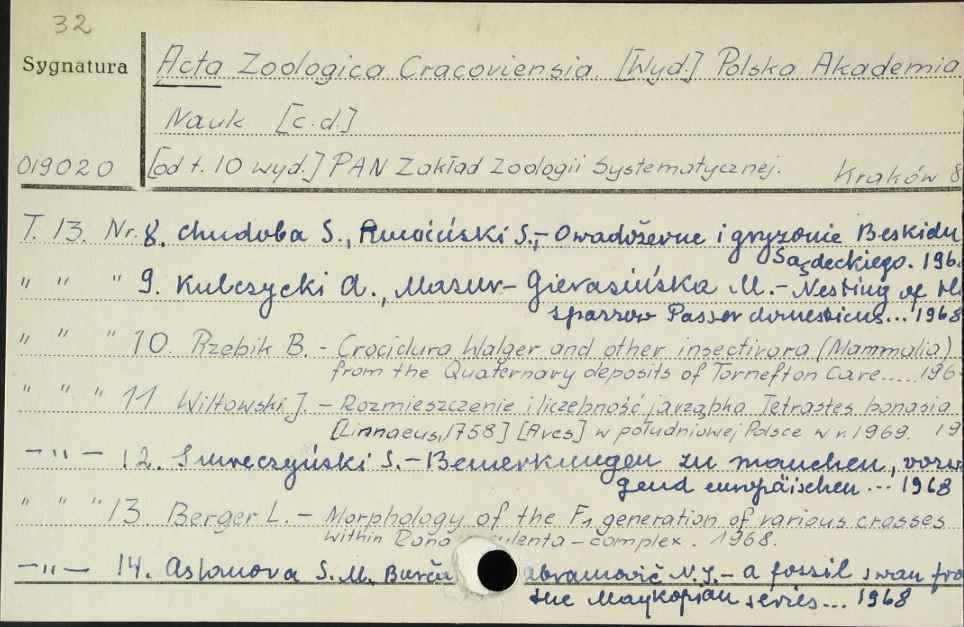 32
Sygnatura
Acta Zoologica Cracoviensia. [Wyd.] Polska Akademia
Nauk [c.d.]
019020
[od t. 10 wyd.] PAN Zakład Zoologii Systematycznej. Kraków 8
T. 13. Nr. 8. Chudoba S., S.,- Owadożerne i gryzonie Beskidu
Sądeckiego. 196
" " " 9. Kulczycki A., Mazur- Gierasińska M.- Nesting of th
sparrow Passer domesticus... 1968
" " " 10. Rzebik B. - Crocidura Walger and other insectivora (Mammalia)
from the Quaternary deposits of Tornefton Care..... 196
" " " 11 Wiltowski J. - Rozmieszczenie i liczebność jarząbka Tetrastes bonasia
[Linnaeus, 1758] [Aves] w południowej Polsce w r. 1969. 19
- " - 12. Smreczyński S.- Bemerkungen zu manchen, vorw
gend europäischen ... 1968
" " " 13. Berger L. - Morphology of the F1 generation of various crosses
within Rana ulenta - complex. 1968.
- " - 14. S. M. Burča abramovič N. J.- a fossil swan fro
the Maykopian series... 1968